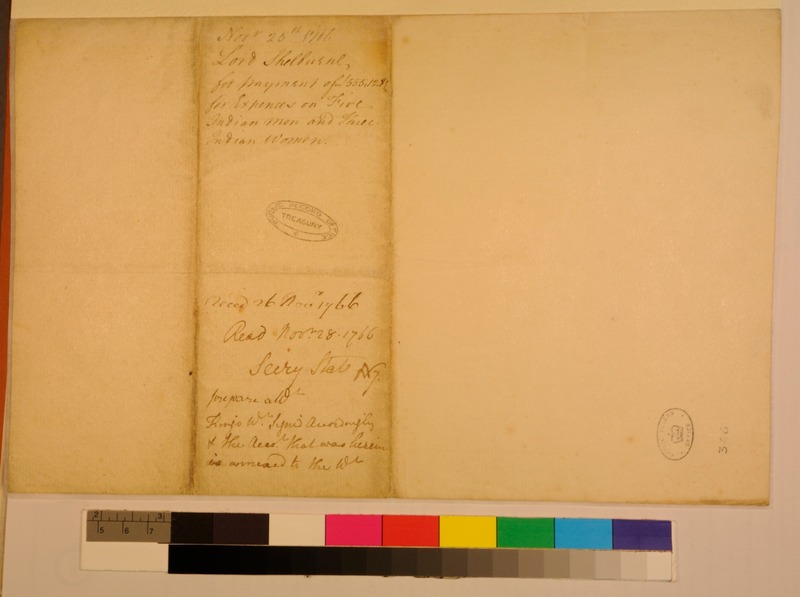 Novr 25th 1766
Lord Shelburne,
for payment of £
for Expences on Five
Indian Men and Three
Indian Women.
PUBLIC RECORD OFFICE
TREASURY
Reced 26 Novr 1766
Read Novr 28. 1766
Secry State
prepare a Wt
Kings Wt Sign'd Accordingly
& the Accot that was herein
is annexed to the Wt
346
2 3
5 6 7